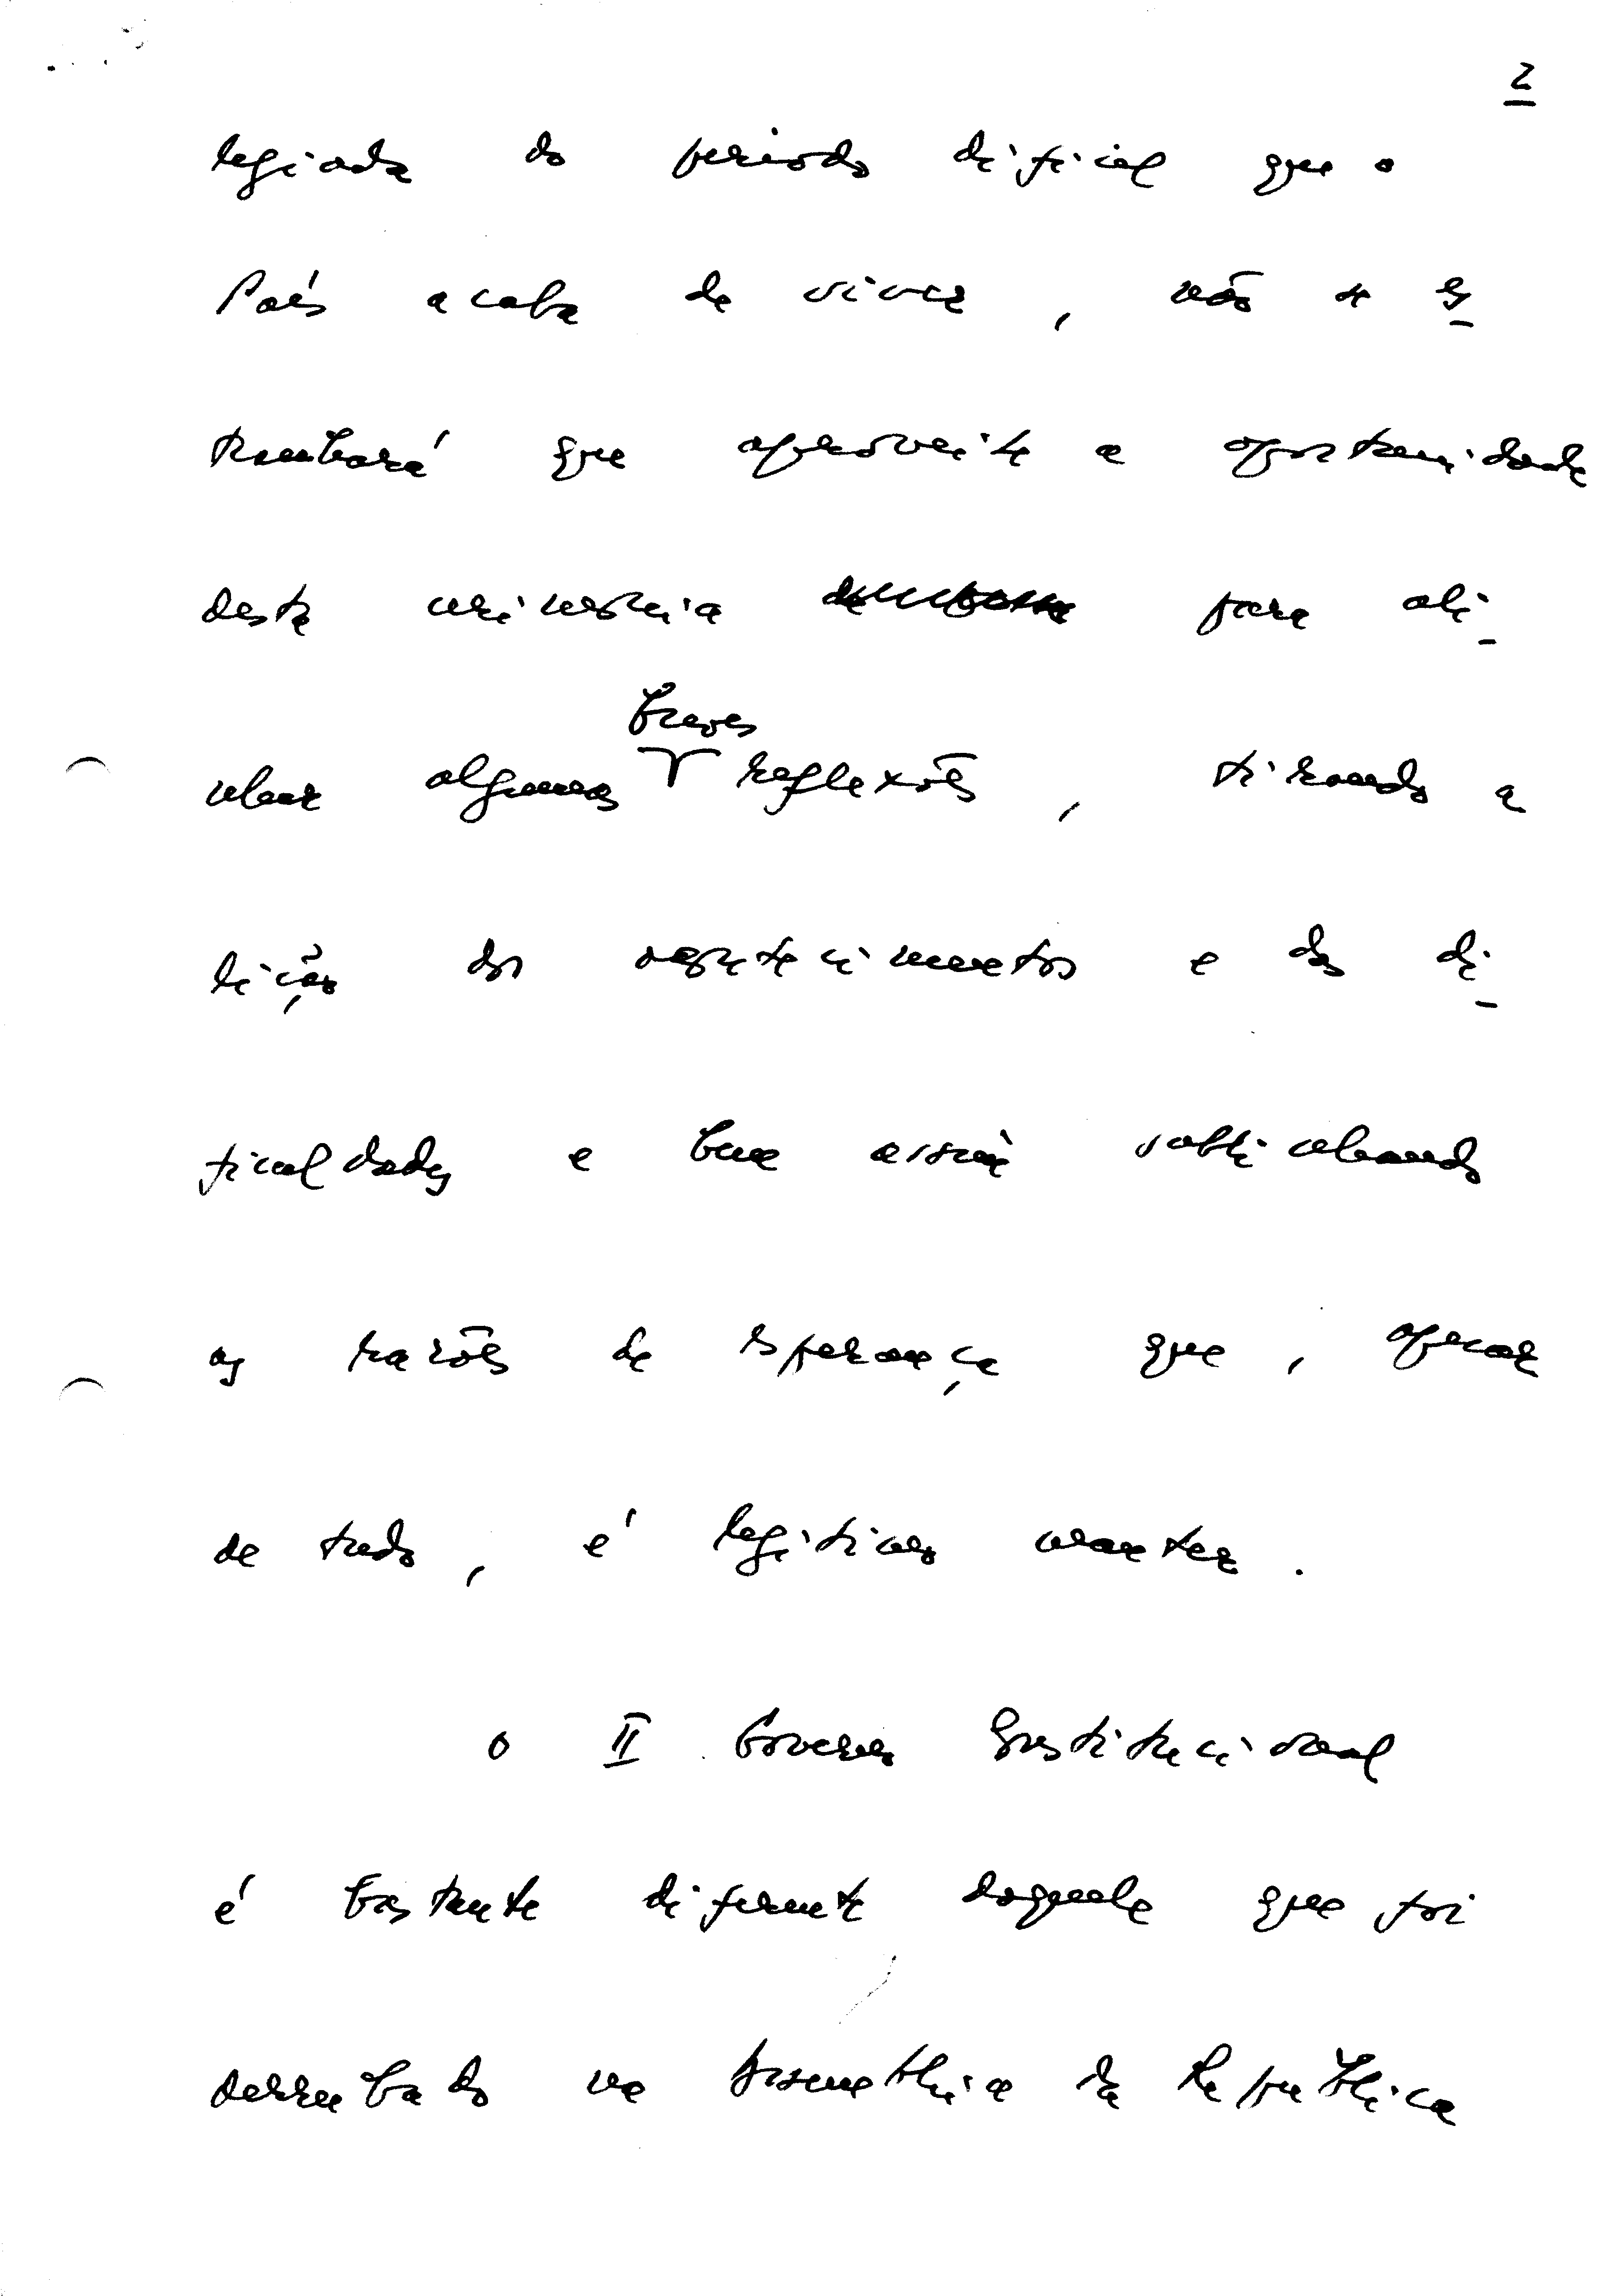 2
legiada do período difícil que o
País acaba de viver, não se es-
tranhará que aproveite a oportunidade
desta cerimónia para ali-
nhar algumas breves reflexões, tirando a
lição dos acontecimentos e das di-
ficuldades e bem assim sublinhando
as razões de esperança que, apesar
de tudo, é legítimo manter.
O II Governo Constitucional
é bastante diferente daquele que foi
derrubado na Assembleia da República